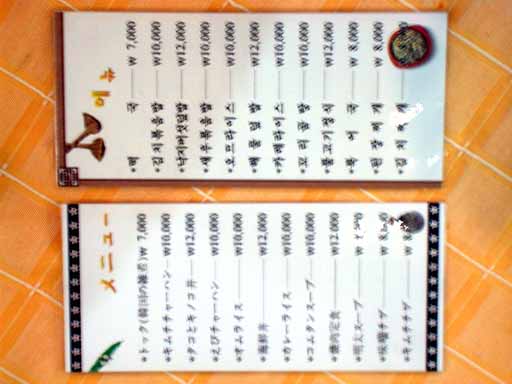 메뉴
*떡 국 ₩ 7,000
*김치볶음밥 ₩10,000
*낙지버섯덮밥 ₩12,000
*새우볶음밥 ₩10,000
*오므라이스 ₩10,000
*해물덮밥 ₩12,000
*카레라이스 ₩10,000
*꼬리곰탕 ₩10,000
*불고기정식 ₩12,000
*북 어 국 ₩ 8,000
*된장찌개 ₩ 8,000
*김치찌개
メニュー
*トック(韓国の雑煮) ₩ 7,000
*キムチチャーハン ₩10,000
*タコとキノコ丼 ₩12,000
*えびチャーハン ₩10,000
*オムライス ₩10,000
*海鮮丼 ₩12,000
*カレーライス ₩10,000
*コムタンスープ ₩10,000
*焼肉定食 ₩12,000
*明太スープ
*味噌チゲ ₩ 8,000
*キムチチゲ